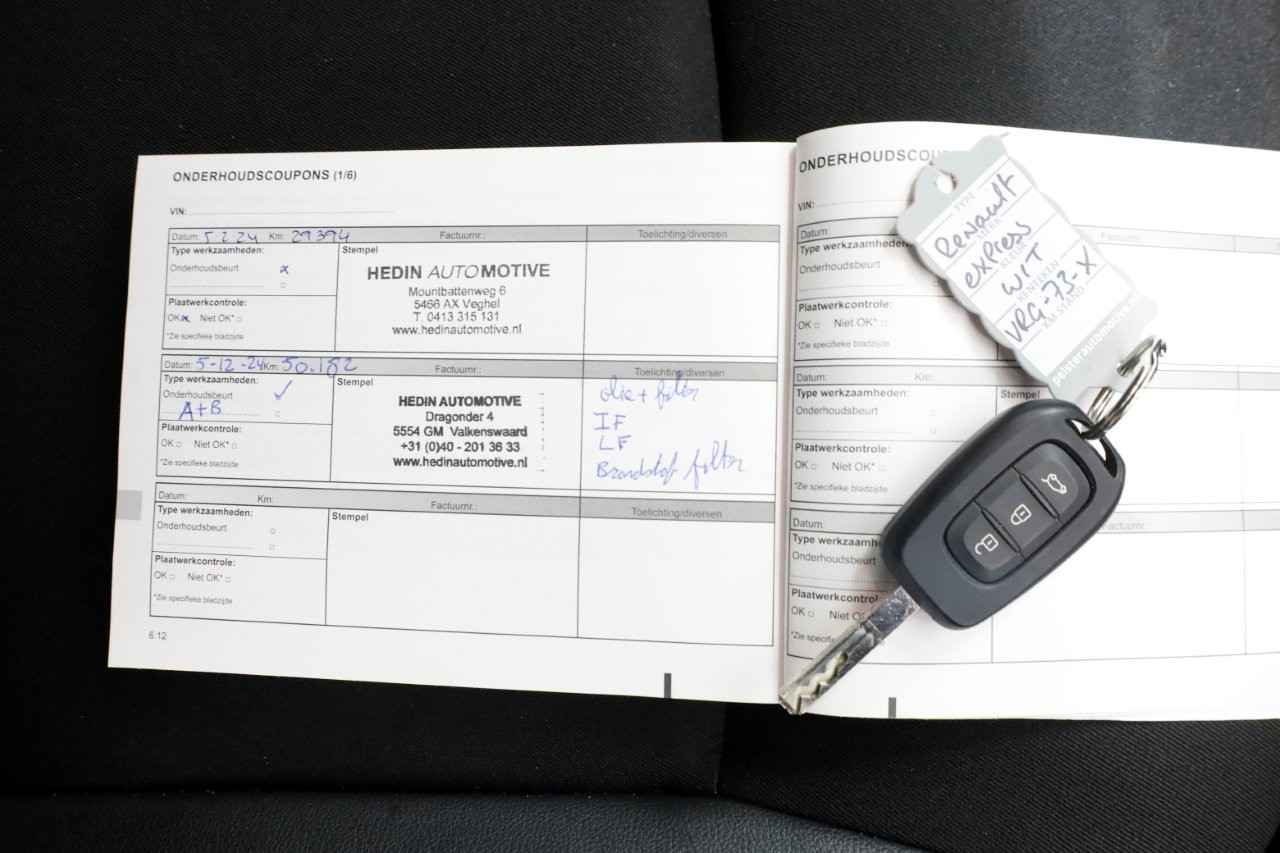 ONDERHOUDSCOUPONS (1/6)
VIN:
Datum: 5-2-24 Km: 29394 Factuurnr.: Toelichting/diversen
Type werkzaamheden: Stempel
Onderhoudsbeurt x
HEDIN AUTOMOTIVE
Mountbattenweg 6
5466 AX Veghel
T. 0413 315 131
www.hedinautomotive.nl
Plaatwerkcontrole:
OK x Niet OK*
*Zie specifieke bladzijde
Datum: 5-12-24 Km: 50.182 Factuurnr.: Toelichting/diversen
Type werkzaamheden: Stempel
Onderhoudsbeurt ✓
A+B
HEDIN AUTOMOTIVE
Dragonder 4
5554 GM Valkenswaard
+31 (0)40 - 201 36 33
www.hedinautomotive.nl
olie + filter
IF
LF
Brandstof filter
Plaatwerkcontrole:
OK Niet OK*
*Zie specifieke bladzijde
Datum: Km: Factuurnr.: Toelichting/diversen
Type werkzaamheden: Stempel
Onderhoudsbeurt
Plaatwerkcontrole:
OK Niet OK*
*Zie specifieke bladzijde
6.12
ONDERHOUDSCOU
VIN:
Datum: Factuurnr.:
Type werkzaamheden
Onderhoudsbeurt
Plaatwerkcontrole:
OK Niet OK*
*Zie specifieke bladzijde
Datum: Km:
Type werkzaamheden: Stempel
Onderhoudsbeurt
Plaatwerkcontrole:
OK Niet OK*
*Zie specifieke bladzijde
Datum: Factuurnr.
Type werk
Onderhoudsbeurt
Plaatwerkcontrol
OK Niet O
*Zie specifieke
TYPE
Renault
MERK
express
KLEUR
WIT
KENTEKEN
VRG-73-X
KM-STAND
pelsterautomotive.